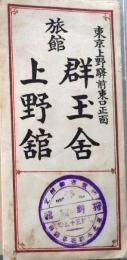 東京上野驛前東口正面
旅館
群玉舎
上野舘